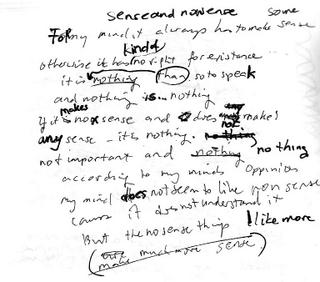 sense and nonsense some
For my mind it always has to make sense
kind of
otherwise it has no right for existance
it is nothing than so to speak
and nothing is... nothing
If it makes no sense and does not makes
any sense - it is nothing.
not important and nothing no thing
according to my minds Oppinion
my mind does not seem to like non sense
cause it does not understand it
But the no sense thing I like more
(make much more sense)